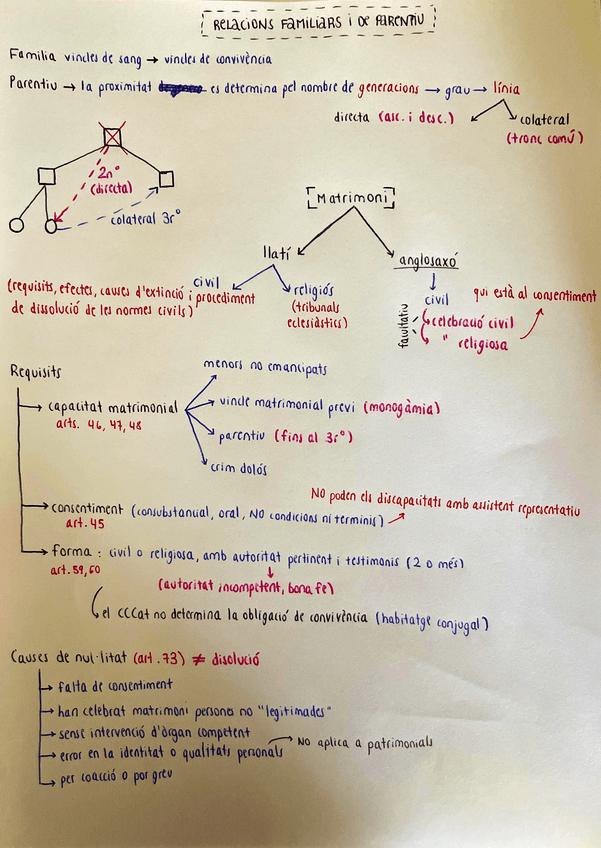 RELACIONS FAMILIARS I DE PARENTIU
Família vincles de sang → vincles de convivència
Parentiu → la proximitat es determina pel nombre de generacions → grau → línia
directa (asc. i desc.)
colateral
(tronc comú)
2nº
(directa)
colateral 3rº
[Matrimoni]
llatí
anglosaxó
civil
religiós
(tribunals
eclesiàstics)
(requisits, efectes, causes d'extinció i procediment
de dissolució de les normes civils)
civil
qui està al consentiment
facultatiu
celebració civil
" religiosa
Requisits
menors no emancipats
→ capacitat matrimonial
arts. 46, 47, 48
vincle matrimonial previ (monogàmia)
parentiu (fins al 3rº)
crim dolós
No poden els discapacitats amb assistent representatiu
→ consentiment (consubstancial, oral, NO condicions ni terminis)
art. 45
→ forma : civil o religiosa, amb autoritat pertinent i testimonis (2 o més)
art. 59, 60
(autoritat incompetent, bona fe)
el CCCat no determina la obligació de convivència (habitatge conjugal)
Causes de nul·litat (art. 73) ≠ disolució
→ falta de consentiment
→ han celebrat matrimoni persones no "legitimades"
→ sense intervenció d'òrgan competent
→ error en la identitat o qualitats personals → No aplica a patrimonials
→ per coacció o por greu